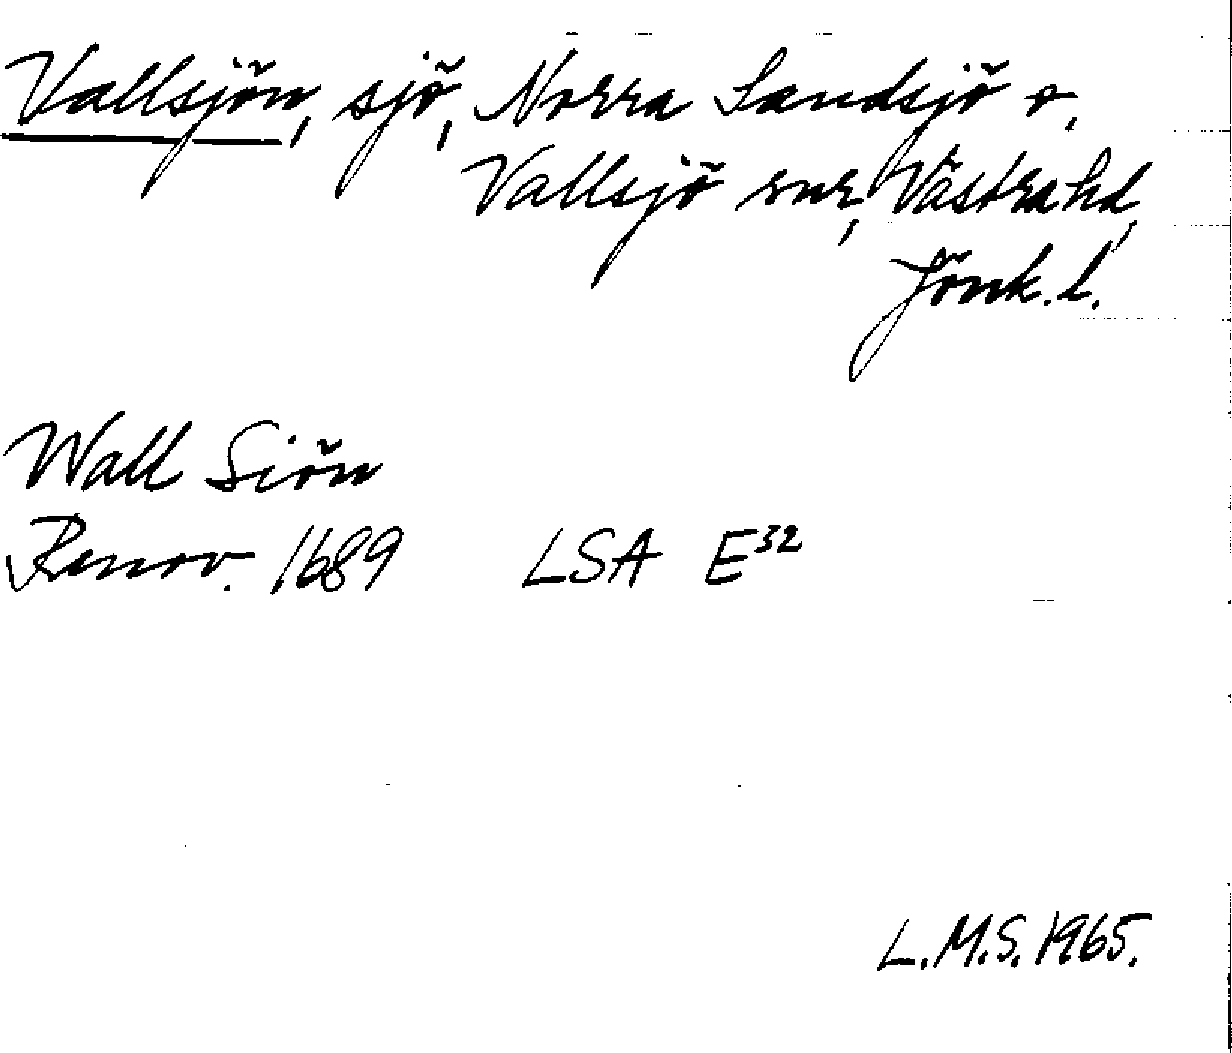 Vallsjön, sjö, Norra Sandsjö o.
Vallsjö snr, Västra hd,
Jönk. l.
Wall Siön
Renov. 1689 LSA E32
L.M.S. 1965.